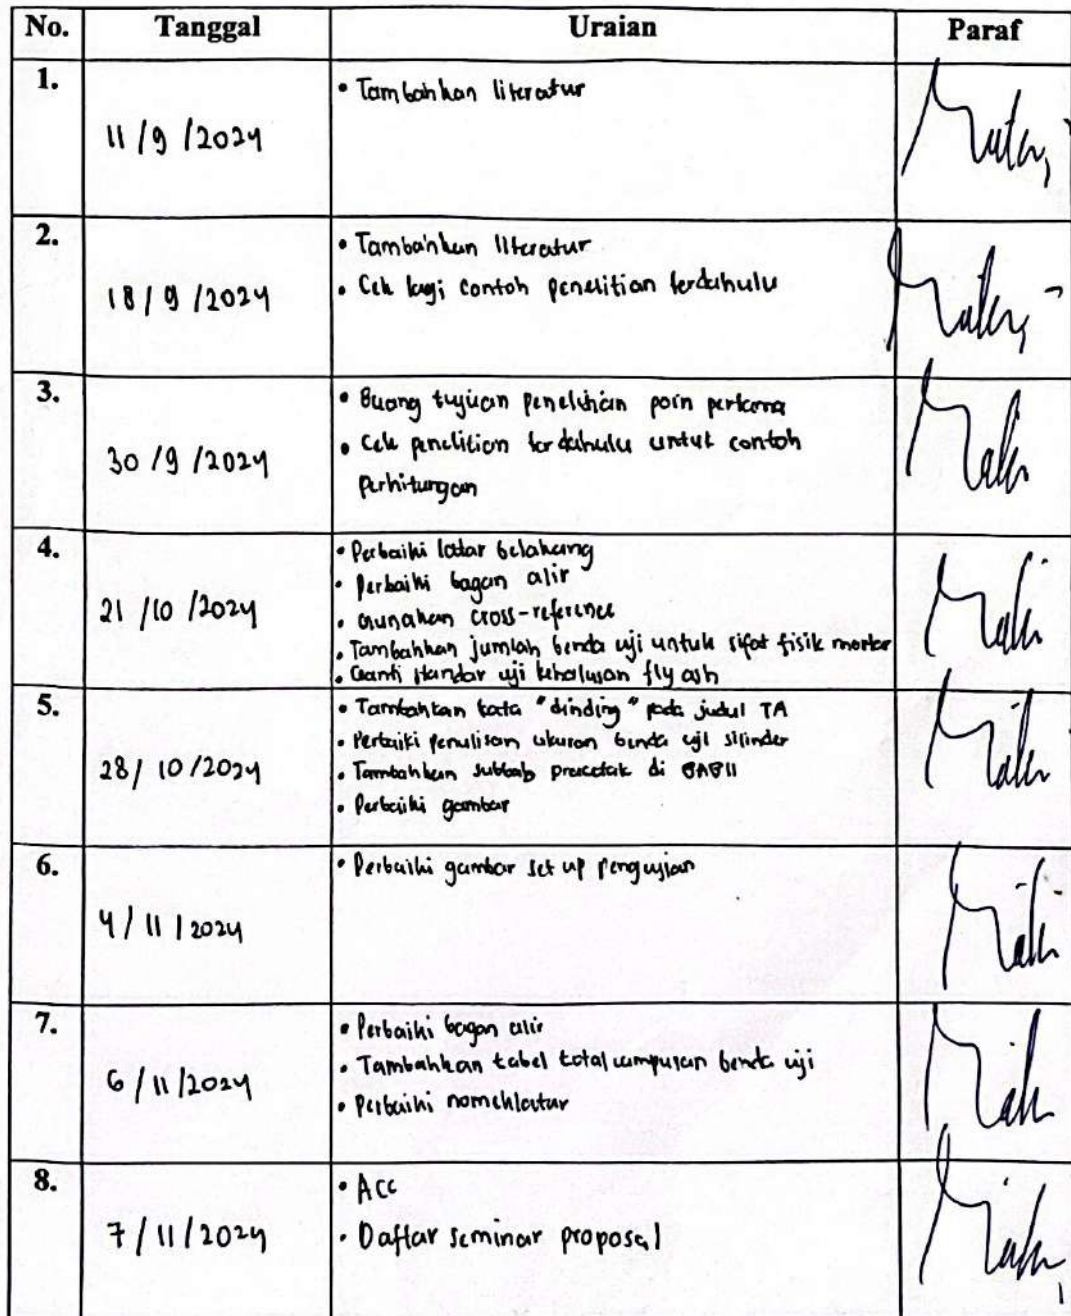 No. Tanggal Uraian Paraf
1. 11/9/2024 • Tambahkan literatur
2. 18/9/2024 • Tambahkan literatur
• Cek lagi contoh penelitian terdahulu
3. 30/9/2024 • Buang tujuan penelitian poin pertama
• Cek penelitian terdahulu untuk contoh
perhitungan
4. 21/10/2024 • Perbaiki latar belakang
• Perbaiki bagan alir
• Gunakan cross-reference
• Tambahkan jumlah benda uji untuk sifat fisik mortar
• Ganti standar uji kehalusan fly ash
5. 28/10/2024 • Tambahkan kata "dinding" pada judul TA
• Perbaiki penulisan ukuran benda uji silinder
• Tambahkan subbab pracetak di BAB II
• Perbaiki gambar
6. 4/11/2024 • Perbaiki gambar set up pengujian
7. 6/11/2024 • Perbaiki bagan alir
• Tambahkan tabel total campuran benda uji
• Perbaiki nomenklatur
8. 7/11/2024 • Acc
• Daftar seminar proposal